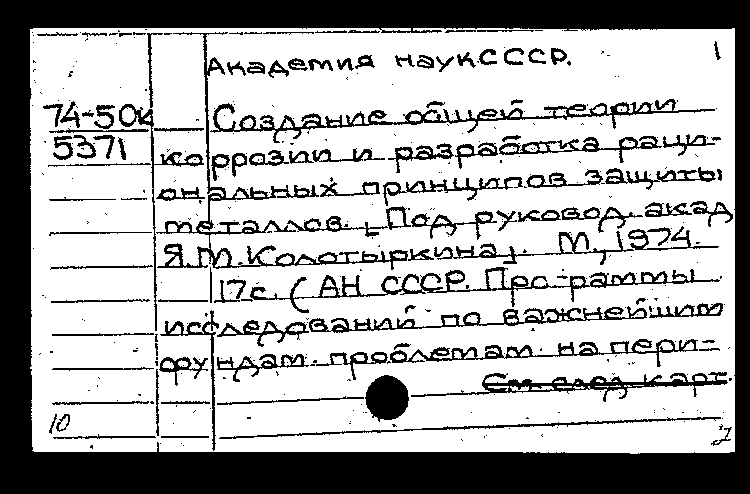 Академия наук СССР. 1
74-50к Создание общей теории
5371 коррозии и разработка раци-
ональных принципов защиты
металлов. [Под руковод. акад
Я.М. Колотыркина]. М., 1974.
17с. (АН СССР. Программы
исследований по важнейшим
фундам. проблемам на пери-
См. след карт.
10